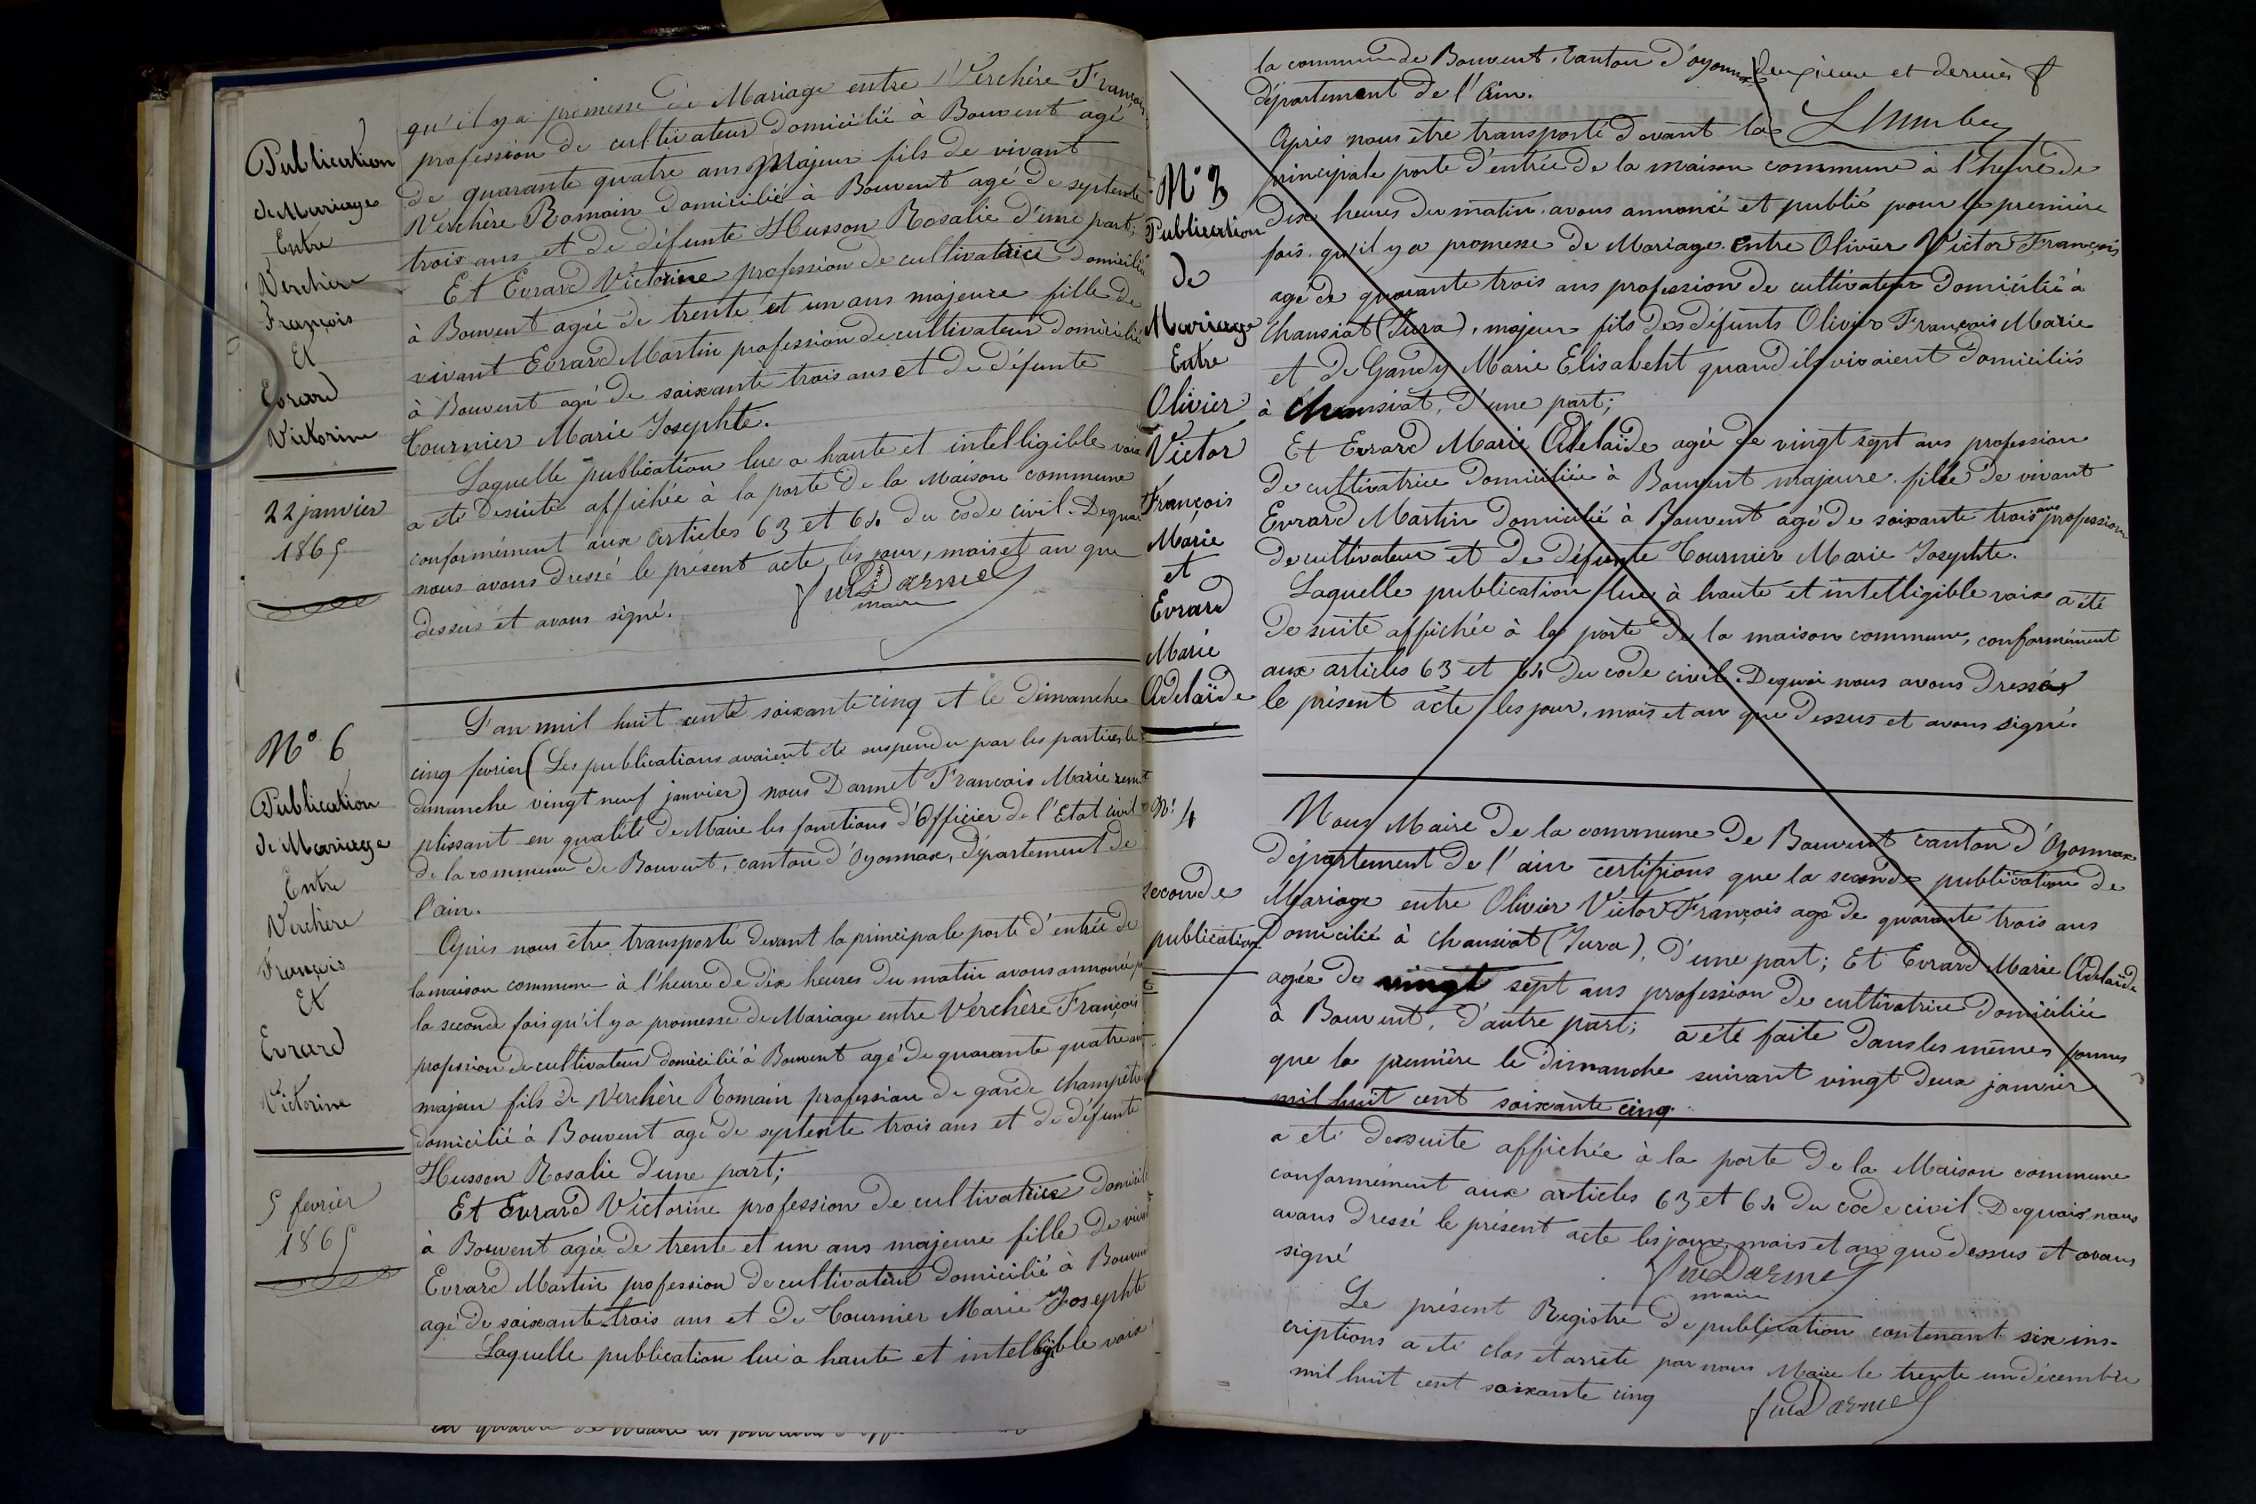 Publication
de Mariage
Entre
Verchère
François
Et
Evrard
Victorine
22 janvier
1865
qu'il y a promesse de Mariage entre Verchère François
profession de cultivateur domicilié à Bouvent agé
de quarante quatre ans Majeur fils de vivant
Verchère Romain domicilié à Bouvent agé de septente
trois ans et de défunte Husson Rosalie d'une part;
Et Evrard Victorine profession de cultivatrice domiciliée
à Bouvent agée de trente et un ans majeure fille de
vivant Evrard Martin profession de cultivateur domicilié
à Bouvent agé de soixante trois ans et de défunte
Tournier Marie Josephte.
Laquelle publication lue a haute et intelligible voix
a été desuite affichée à la porte de la Maison commune
conformément aux articles 63 et 64 du code civil. Dequoi
nous avons dressé le présent acte les jour, mois et an que
dessus et avons signé.
maire
N° 6
Publication
de Mariage
Entre
Verchère
François
Et
Evrard
Victorine
5 fevrier
1865
L'an mil huit cent soixante cinq et le dimanche
cinq fevrier (Les publications avaient été suspendu par les parties le
dimanche vingt neuf janvier) nous Darmet François Marie rem
plissant en qualité de Maire les fonctions d'Officier de l'Etat civil
de la commune de Bouvent, canton d'Oyonnax, département de
l'ain.
Après nous être transporté devant la principale porte d'entrée de
la maison commune à l'heure de dix heures du matin avons annoncé
la seconde fois qu'il y a promesse de Mariage entre Verchère François
profession de cultivateur domicilié à Bouvent agé de quarante quatre ans
majeur fils de Verchère Romain profession de garde champêtre
domicilié à Bouvent agé de septente trois ans et de défunte
Husson Rosalie d'une part;
Et Evrard Victorine profession de cultivatrice domicilié
à Bouvent agée de trente et un ans majeure fille de vivant
Evrard Martin profession de cultivateur domicilié à Bouvent
agé de soixante trois ans et de Tournier Marie Josephte
Laquelle publication lue a haute et intelligible voix
la commune de Bouvent, canton d'oyonnax deuxième et dernier f
département de l'Ain.
Après nous être transporté devant la
principale porte d'entrée de la maison commune à l'heure de
dix heures du matin, avons annoncé et publié pour la première
fois qu'il y a promesse de Mariage entre Olivier Victor François
agé de quarante trois ans profession de cultivateur domicilié à
Chansiat (Jura), majeur fils des défunts Olivier François Marie
et de Gandy Marie Elisabeht quand ils vivaient domiciliés
à Chansiat, d'une part;
Et Evrard Marie Adelaïde agée de vingt sept ans profession
de cultivatrice domiciliée à Bouvent majeure fille de vivant
Evrard Martin domicilié à Bouvent agé de soixante trois ans profession
de cultivateur et de défunte Tournier Marie Josephte.
Laquelle publication lue à haute et intelligible voix a été
de suite affichée à la porte de la maison commune, conformément
aux articles 63 et 64 du code civil. Dequoi nous avons dressé
le présent acte les jour, mois et an que dessus et avons signé.
N° 3
Publication
de
Mariage
Entre
Olivier
Victor
François
Marie
et
Evrard
Marie
Adelaïde
N° 4
seconde
publication
Nous Maire de la commune de Bouvent canton d'Oyonnax
département de l'ain certifions que la seconde publication de
Mariage entre Olivier Victor François agé de quarante trois ans
domicilié à Chansiat (Jura), d'une part; Et Evrard Marie Adelaïde
agée de vingt sept ans profession de cultivatrice domiciliée
à Bouvent, d'autre part; a été faite dans les mêmes formes
que la première le dimanche suivant vingt deux janvier
mil huit cent soixante cinq.
a été desuite affichée à la porte de la Maison commune
conformément aux articles 63 et 64 du code civil Dequoi nous
avons dressé le présent acte les jour, mois et an que dessus et avons
signé
maire
Le présent Registre de publication contenant six ins-
criptions a été clos et arrêté par nous Maire le trente un décembre
mil huit cent soixante cinq